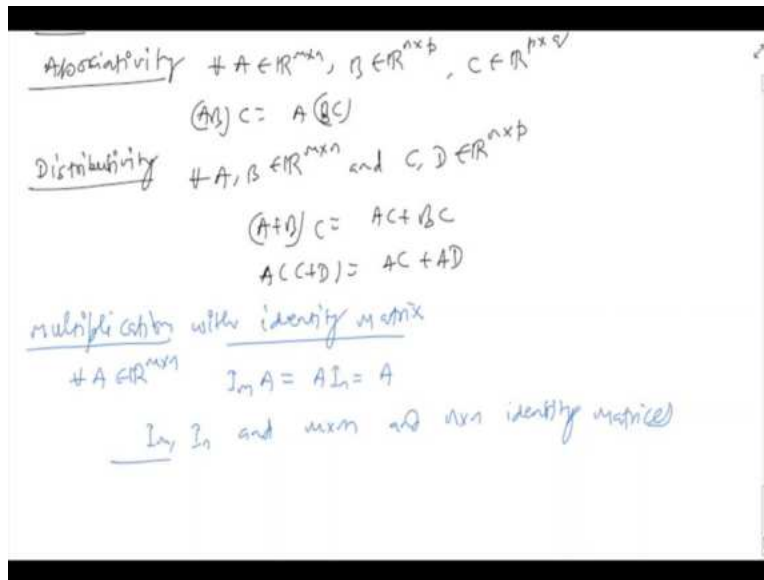 Associativity ∀ A ∈ ℝ^{m×n}, B ∈ ℝ^{n×p}, C ∈ ℝ^{p×q}
(AB) C = A (BC)
Distributivity ∀ A, B ∈ ℝ^{m×n} and C, D ∈ ℝ^{n×p}
(A+B) C = AC + BC
A (C+D) = AC + AD
multiplication with identity matrix
∀ A ∈ ℝ^{m×n} I_m A = A I_n = A
I_m, I_n and m×m and n×n identity matrices